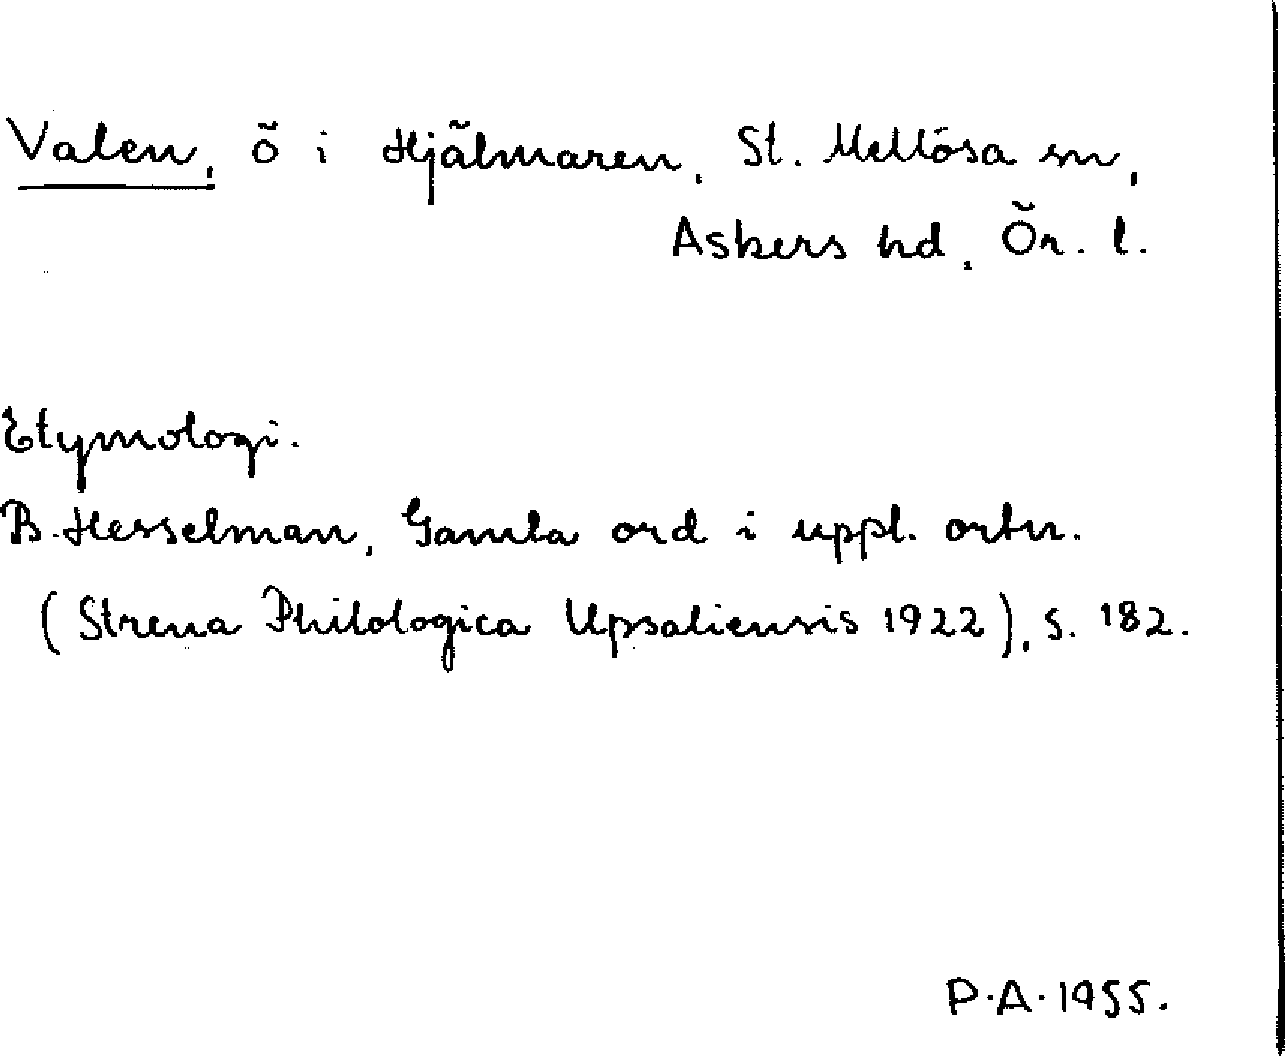 Valen, ö i Hjälmaren, St. Mellösa sn,
Askers hd, Ör. l.
Etymologi.
B. Hesselman, Gamla ord i uppl. ortn.
(Strena Philologica Upsaliensis 1922), s. 182.
P.A. 1955.